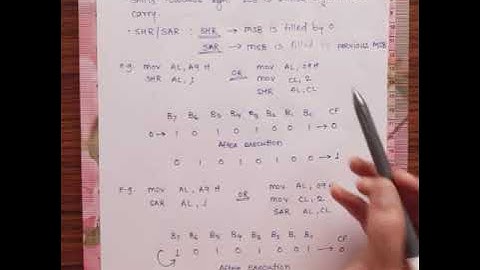 carry.
• SHR/SAR : SHR → MSB is filled by 0
SAR → MSB is filled by previous MSB
e.g. mov AL, A9 H OR mov AL, 09H
SHR AL, 1 mov CL, 2
SHR AL, CL
B7 B6 B5 B4 B3 B2 B1 B0 CF
0→ 1 0 1 0 1 0 0 1 → 0
After execution
0 1 0 1 0 1 0 0 → 1
E.g. mov AL, A9 H OR mov AL, 09H
SAR AL, 1 mov CL, 2
SAR AL, CL
B7 B6 B5 B4 B3 B2 B1 B0 CF
1 0 1 0 1 0 0 1 → 0
After execution